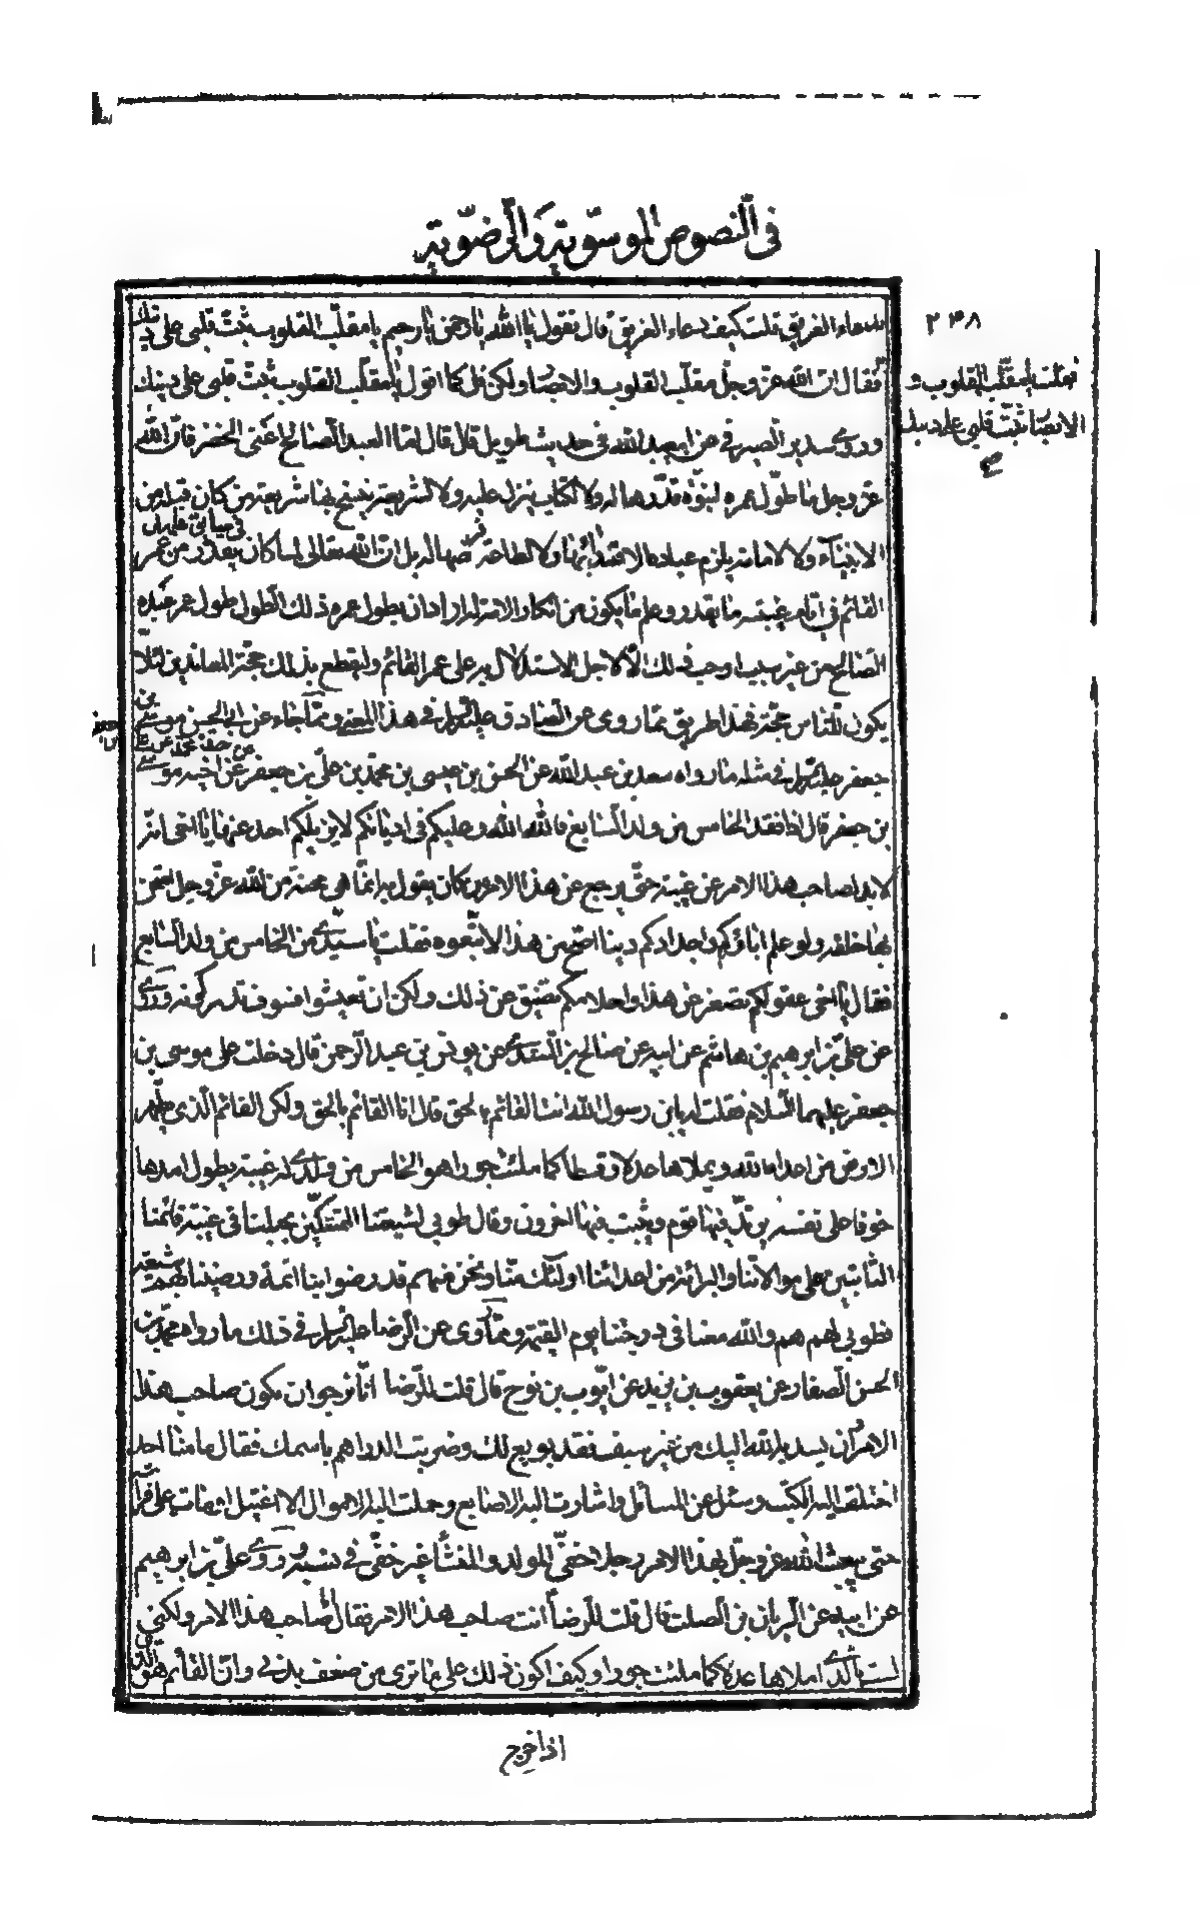 في النصوص الموسوية والرضوية
٢٤٨
بدعاء الغريق قلت كيف دعاء الغريق قال تقول يا الله يا رحمن يا رحيم يا مقلب القلوب ثبت قلبي على دينك
فقلت يا مقلب القلوب و
الابصار ثبت قلبي على دينك
فقال ان الله عز وجل مقلب القلوب والابصار ولكن قل كما اقول يا مقلب القلوب ثبت قلبي على دينك
وروى سدير الصيرفي عن ابيعبد الله في حديث طويل قال قال لنا العبد الصالح اعنى الخضر فان الله
عز وجل ما طول عمره لنبوة قدرها له ولا لكتاب ينزله عليه ولا لشريعة ينسخ بها شريعة من كان قبله من
الانبياء ولا لامامة يلزم عباده الاقتداء بها ولا لطاعة بل ان الله تعالى لما كان يقدر من عمر
القائم في ايام غيبته ما يقدر وعلم ما يكون من انكار اراد ان يطول عمره ذلك الطول طول عمر عبده
الصالح من غير سبب اوجب ذلك الا لاجل الاستدلال به على عمر القائم ولينقطع بذلك حجة المعاندين لئلا
يكون للناس حجة فهذا طريق مما روى عن الصادق عليه السلام في هذا المعنى ومما جاء عن ابي الحسن موسى بن
جعفر عليه السلام في مثله ما رواه سعد بن عبد الله عن الحسن بن عيسى بن محمد بن علي بن جعفر عن اخيه موسى
بن جعفر قال اذا فقد الخامس من ولد السابع فالله الله وعليكم في اديانكم لا يزيلكم احد عنها يا اخى انه
لا بد لصاحب هذا الامر عن غيبة حتى يرجع عن هذا الامر من كان يقول به انما هي محنة من الله عز وجل امتحن
بها خلقه ولو علم اباؤكم واجدادكم دينا اصح من هذا لاتبعوه فقلت يا سيدي من الخامس من ولد السابع
فقال يا اخى عقولكم تصغر عن هذا واحلامكم تضيق عن ذلك ولكن ان تعيشوا فسوف تدركونه وروى
عن علي بن ابرهيم بن هاشم عن ابيه عن صالح بن السندي عن يونس بن عبد الرحمن قال دخلت على موسى بن
جعفر عليهما السلام فقلت له يابن رسول الله انت القائم بالحق قال انا القائم بالحق ولكن القائم الذى يطهر
الارض من اعداء الله ويملاها عدلا وقسطا كما ملئت جورا هو الخامس من ولدى له غيبة يطول امدها
خوفا على نفسه يرتد فيها قوم ويثبت فيها اخرون وقال طوبى لشيعتنا المتمسكين بحبلنا في غيبة قائمنا
الثابتين على موالاتنا والبرائة من اعدائنا اولئك منا ونحن منهم قد رضوا بنا ائمة ورضينا بهم شيعة
فطوبى لهم هم والله معنا في درجتنا يوم القيمة ومما روى عن الرضا عليه السلام في ذلك ما رواه محمد بن
الحسن الصفار عن يعقوب بن يزيد عن ايوب بن نوح قال قلت للرضا انا نرجو ان تكون صاحب هذا
الامر وان يسديه الله اليك من غير سيف فقد بويع لك وضربت الدراهم باسمك فقال ما منا احد
اختلف اليه الكتب وسئل عن المسائل واشارت اليه الاصابع وحملت اليه الاموال الا اغتيل او مات على فراشه
حتى يبعث الله عز وجل لهذا الامر رجلا خفي المولد والمنشأ غير خفي في نسبه وروى علي بن ابرهيم
عن ابيه عن الريان بن الصلت قال قلت للرضا انت صاحب هذا الامر فقال انا صاحب هذا الامر ولكني
لست بالذي املاها عدلا كما ملئت جورا وكيف اكون ذلك على ما ترى من ضعف بدني وان القائم هو الذي
اذا خرج